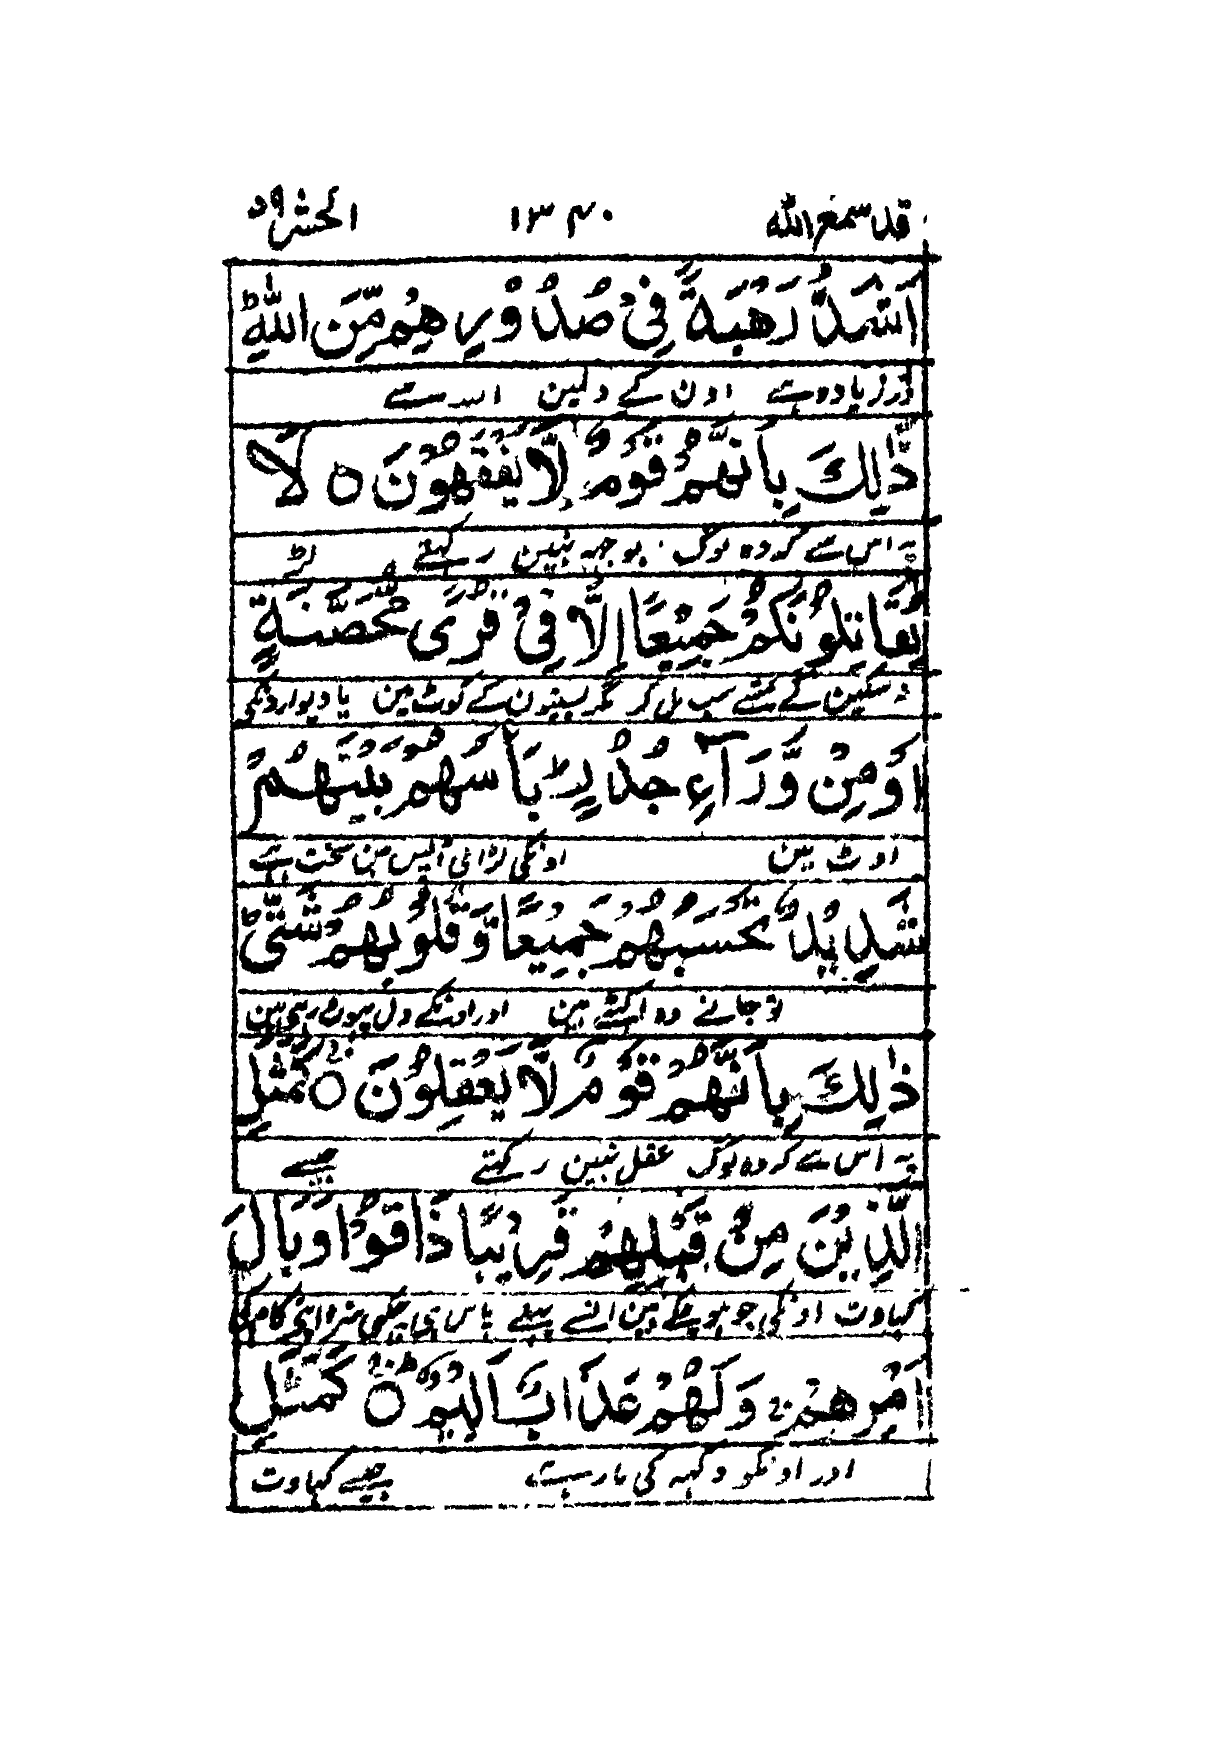 قد سمع الله ١٣٤٠ الحشر ٥٩
اَشَدُّ رَهْبَةً فِيْ صُدُوْرِهِمْ مِّنَ اللّٰهِ ؕ
ڈر زیادہ ہے اون کے دلین اللہ سے
ذٰلِكَ بِاَنَّهُمْ قَوْمٌ لَّا يَفْقَهُوْنَ ○ لَا
یہ اس سے کہ وہ لوگ بوجہہ نہین رکہتے لڑ
يُقَاتِلُوْنَكُمْ جَمِيْعًا اِلَّا فِيْ قُرًى مُّحَصَّنَةٍ
نہ سکین گے تمسے سب مل کر مگر بستیون کے کوٹ مین یا دیوارونکی
اَوْ مِنْ وَّرَآءِ جُدُرٍ ؕ بَاْسُهُمْ بَيْنَهُمْ
اوٹ مین اونکی لڑائی آپس مین سخت ہے
شَدِيْدٌ ؕ تَحْسَبُهُمْ جَمِيْعًا وَّقُلُوْبُهُمْ شَتّٰى ؕ
تو جانے وہ اکٹھے ہین اور اونکے دل پہوٹ رہی ہین
ذٰلِكَ بِاَنَّهُمْ قَوْمٌ لَّا يَعْقِلُوْنَ ○ كَمَثَلِ
یہ اس سے کہ وہ لوگ عقل نہین رکہتے جیسے
الَّذِيْنَ مِنْ قَبْلِهِمْ قَرِيْبًا ذَاقُوْا وَبَالَ
کہاوت اونکی جو ہو چکے ہین انسے پہلے پاس ہی چکہی سزا اپنے کام کی
اَمْرِهِمْ ۚ وَلَهُمْ عَذَابٌ اَلِيْمٌ ○ كَمَثَلِ
اور اونکو دکہہ کی مار ہے جیسے کہاوت